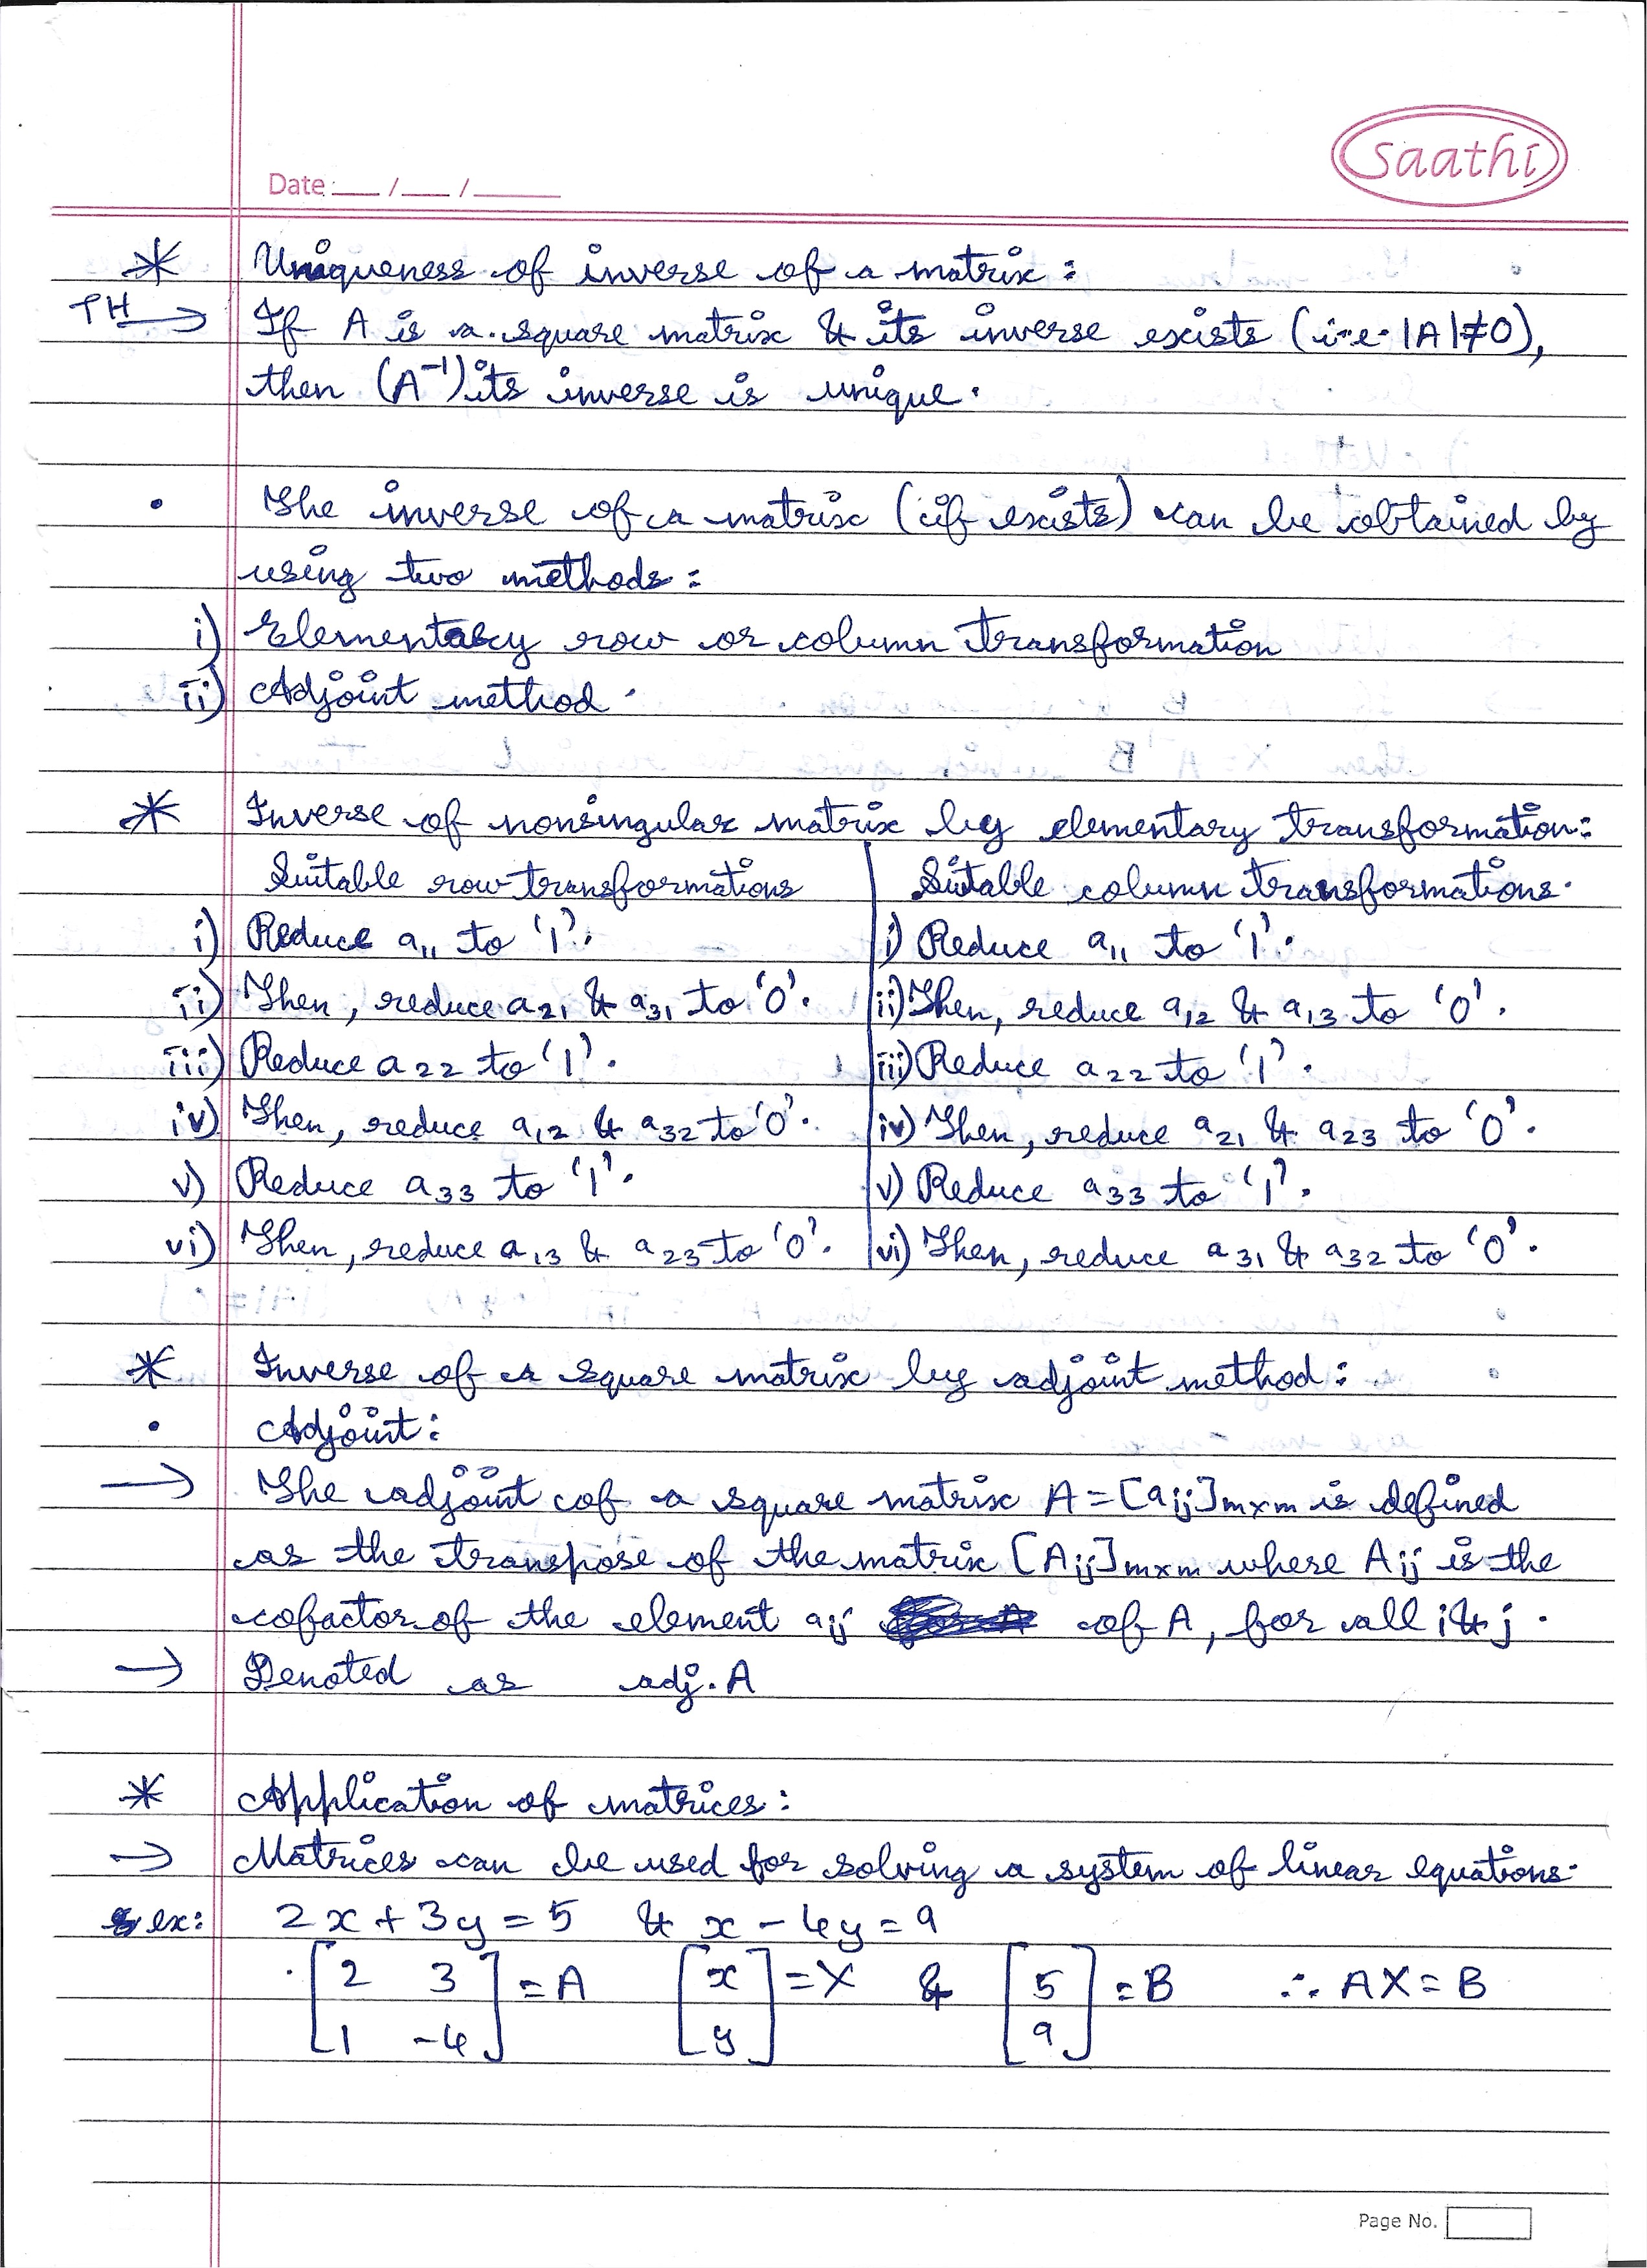 Saathi
Date ___ / ___ / _____
* Uniqueness of inverse of a matrix :
TH → If A is a square matrix & its inverse exists (i.e. |A|≠0),
then (A⁻¹) its inverse is unique.
• The inverse of a matrix (if exists) can be obtained by
using two methods :
i) Elementary row or column transformation
ii) Adjoint method.
* Inverse of nonsingular matrix by elementary transformation:
Suitable row transformations | Suitable column transformations.
i) Reduce a₁₁ to '1'. | i) Reduce a₁₁ to '1'.
ii) Then, reduce a₂₁ & a₃₁ to '0'. | ii) Then, reduce a₁₂ & a₁₃ to '0'.
iii) Reduce a₂₂ to '1'. | iii) Reduce a₂₂ to '1'.
iv) Then, reduce a₁₂ & a₃₂ to '0'. | iv) Then, reduce a₂₁ & a₂₃ to '0'.
v) Reduce a₃₃ to '1'. | v) Reduce a₃₃ to '1'.
vi) Then, reduce a₁₃ & a₂₃ to '0'. | vi) Then, reduce a₃₁ & a₃₂ to '0'.
* Inverse of a square matrix by adjoint method :
• Adjoint :
→ The adjoint of a square matrix A = [aᵢⱼ]m×m is defined
as the transpose of the matrix [Aᵢⱼ]m×m where Aᵢⱼ is the
cofactor of the element aᵢⱼ of A, for all i & j.
→ Denoted as adj. A
* Application of matrices :
→ Matrices can be used for solving a system of linear equations.
ex: 2x + 3y = 5 & x - 4y = 9
[2 3] = A [x] = X & [5] = B ∴ AX = B
[1 -4] [y] [9]
Page No.